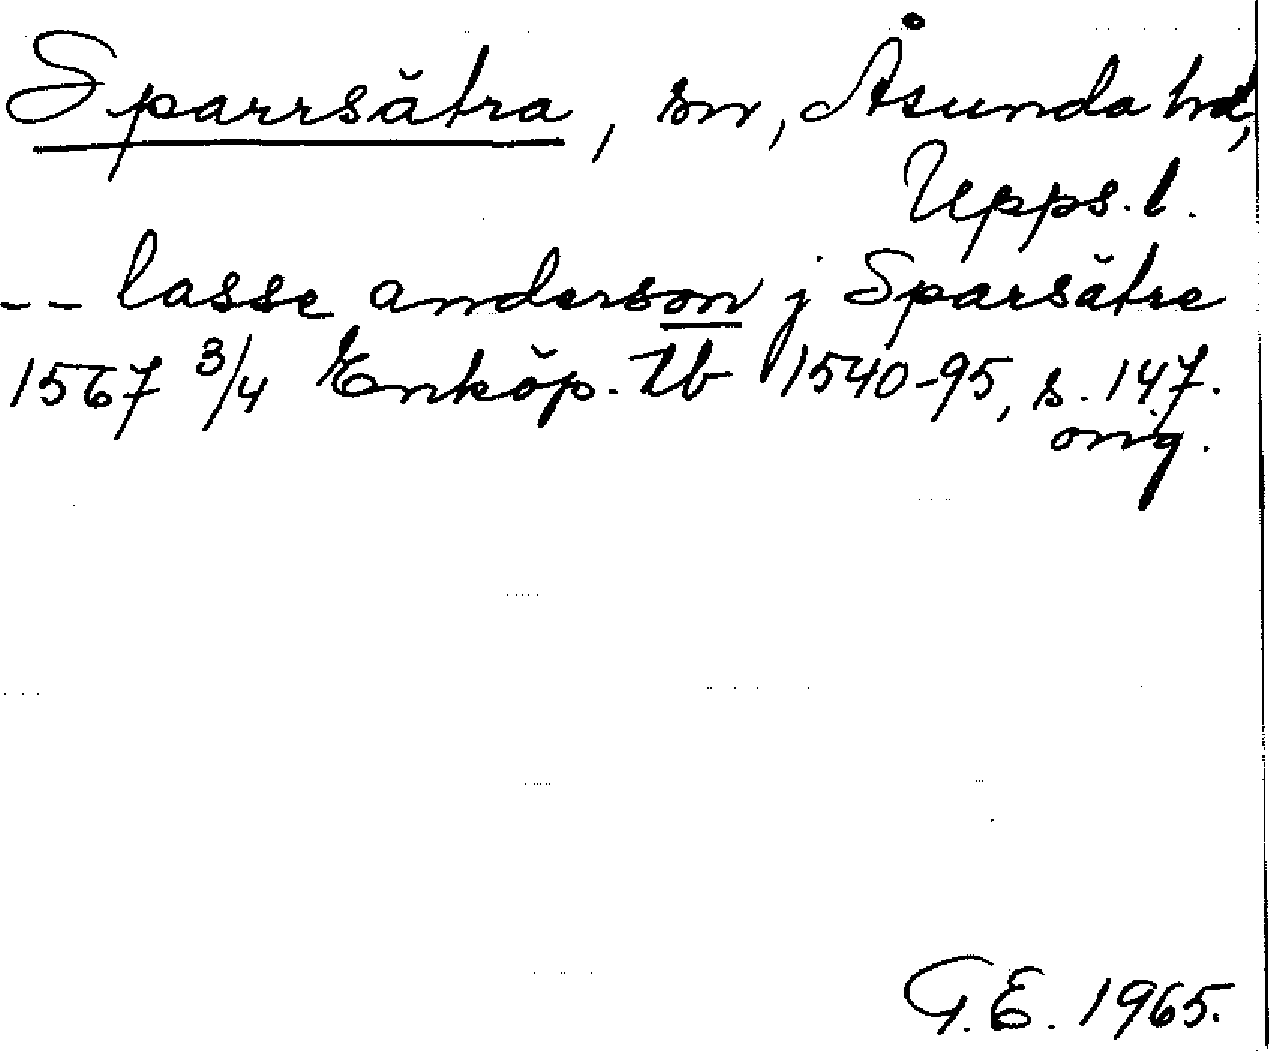 Sparrsätra, sn, Åsunda hd,
Upps. l.
-- lasse anderson j Sparsätre
1567 3/4 Enköp. tb 1540-95, s. 147.
orig.
G. E. 1965.